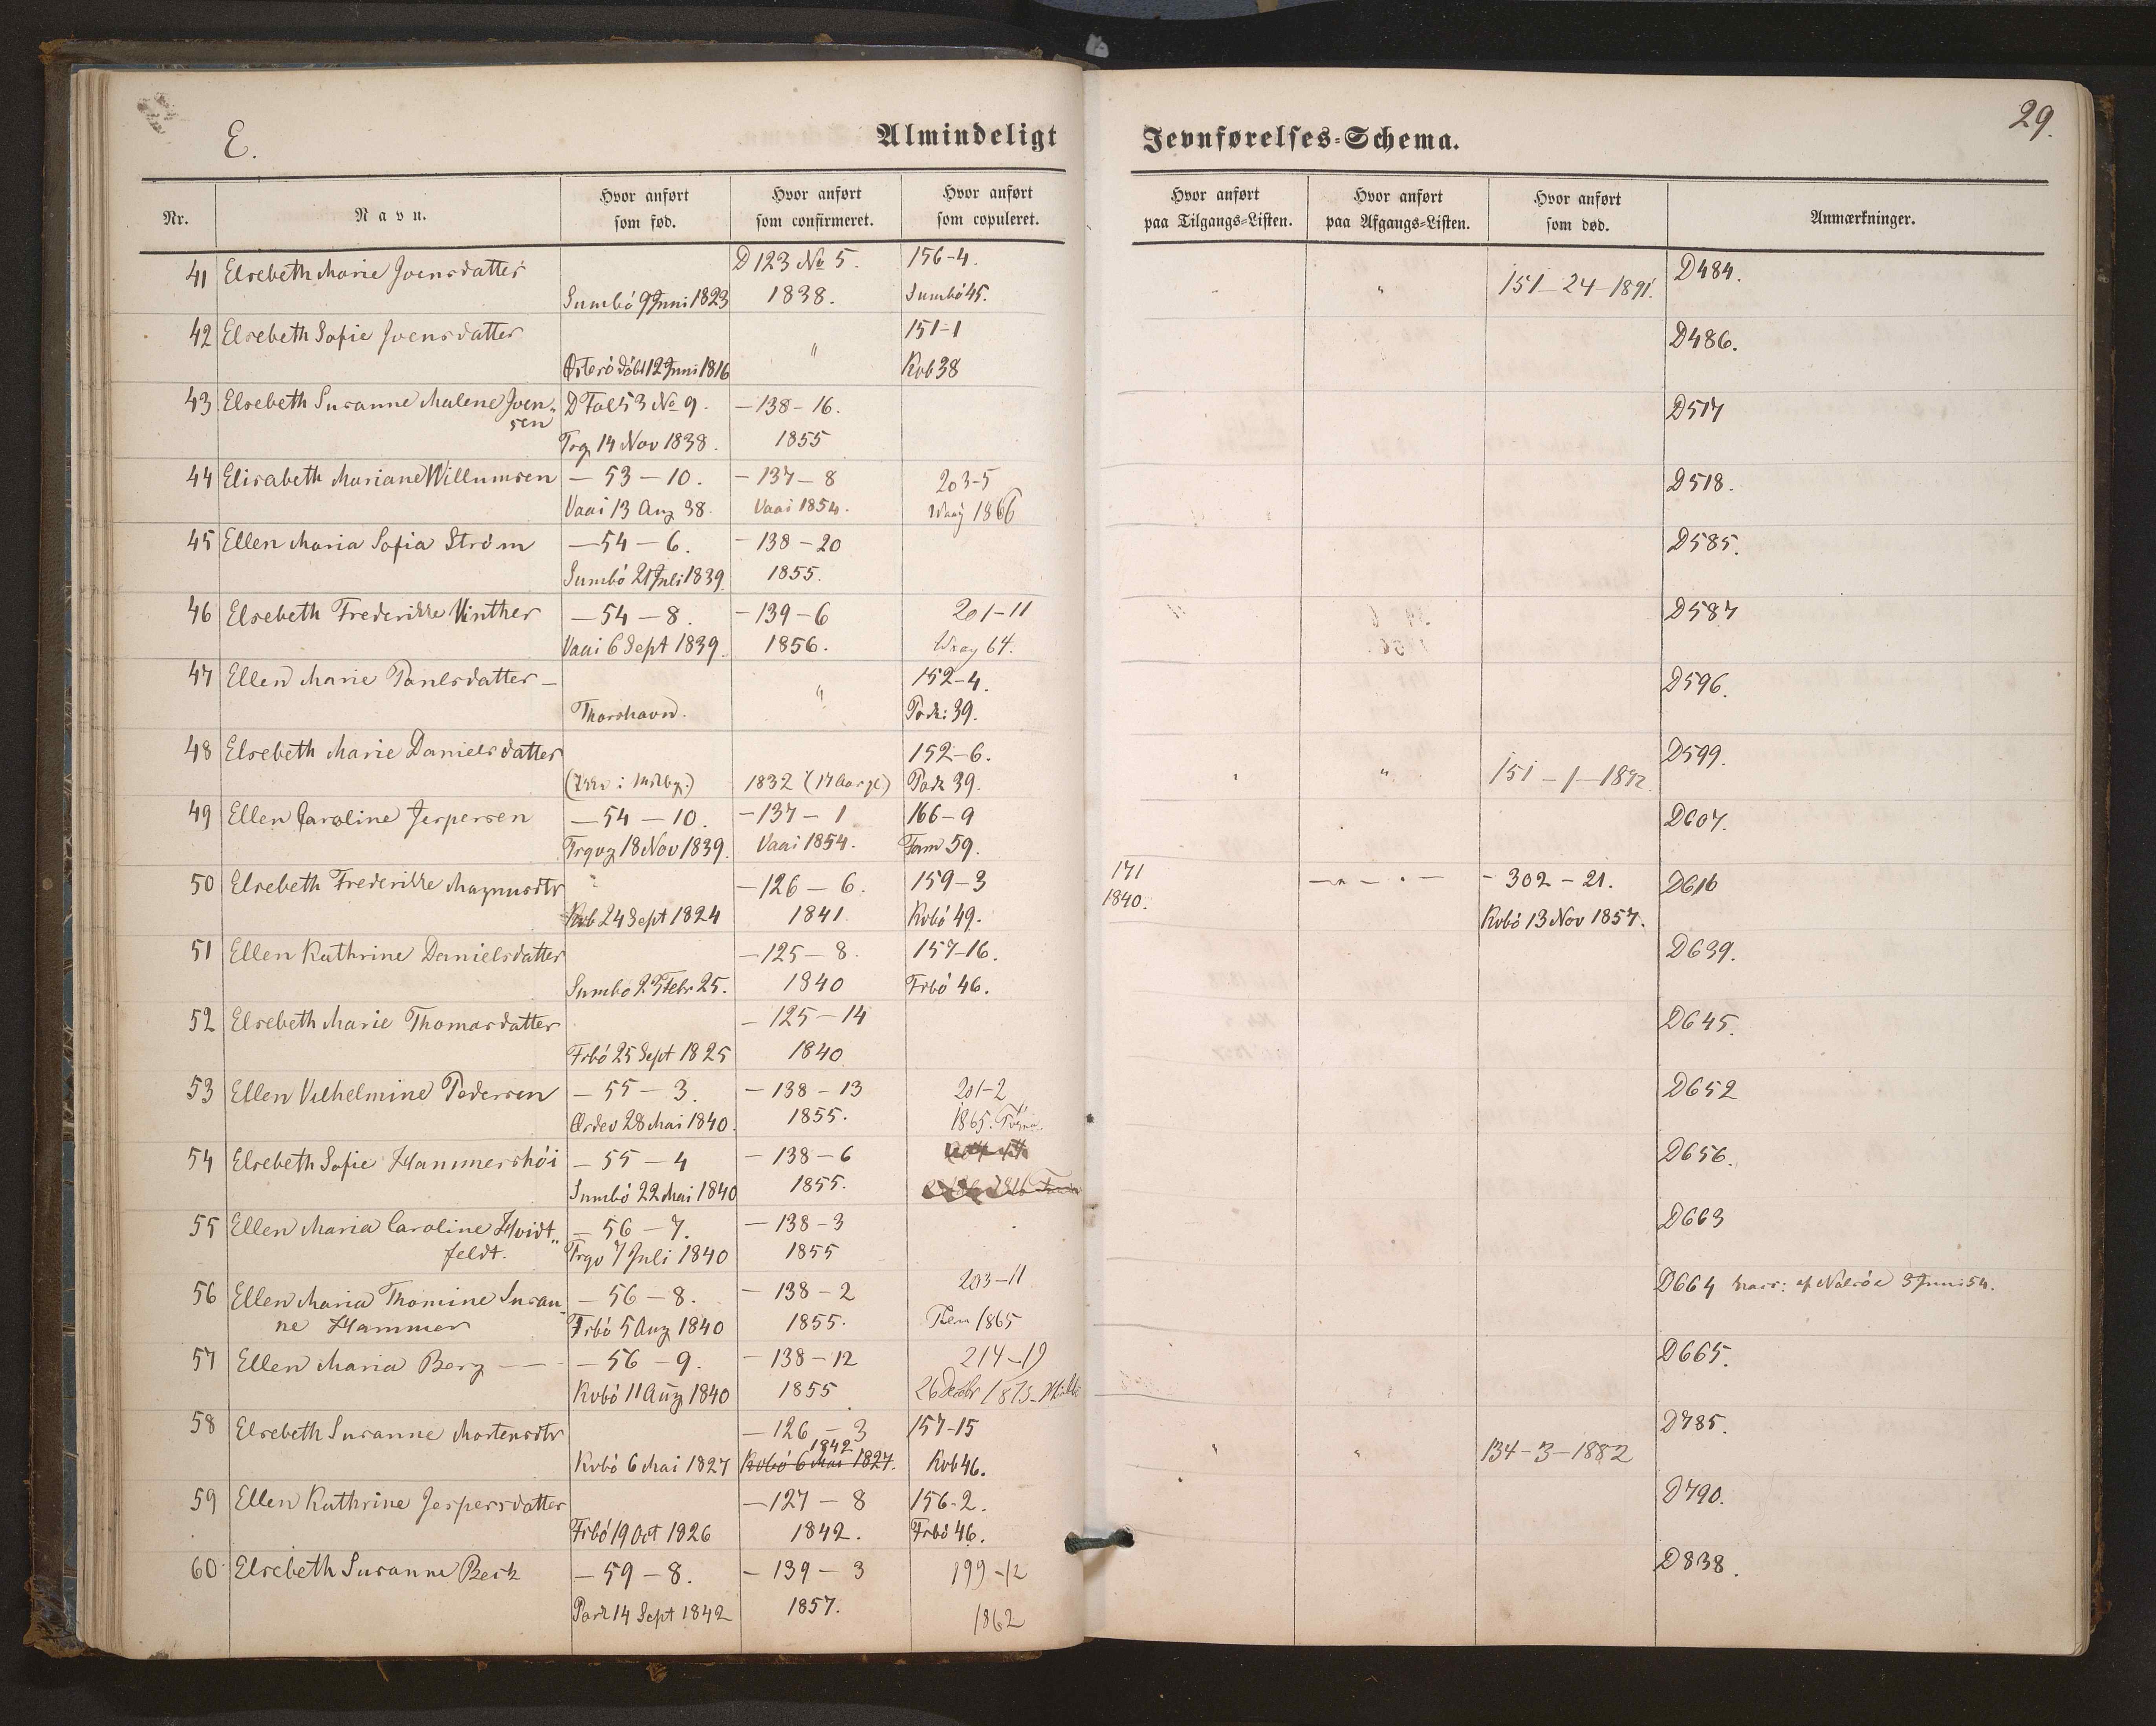 E.
Almindeligt Jevnførelses-Schema.
29.
Nr. Navn. Hvor anført som fød. Hvor anført som confirmeret. Hvor anført som copuleret. Hvor anført paa Tilgangs-Listen. Hvor anført paa Afgangs-Listen. Hvor anført som død. Anmærkninger.
41 Elsebeth Marie Joensdatter D 123 No 5. 156-4. D484.
Sumbö 9 Juni 1823 1838. Sumbö 45. " 151-24-1891.
42 Elsebeth Sofie Joensdatter 151-1 D486.
Österö döbt 12 Juni 1816 " Kvb 38
43 Elsebeth Susanne Malene Joen- D Fol 53 No 9. -138-16. D517
sen Trg 14 Nov 1838. 1855
44 Elisabeth Mariane Willumsen -53-10. -137-8 203-5 D518.
Vaai 13 Aug 38. Vaai 1854. Waag 1866
45 Ellen Maria Sofia Ström -54-6. -138-20 D585.
Sumbö 21 Juli 1839. 1855.
46 Elsebeth Frederikke Vinther -54-8. -139-6 201-11 D587
Vaai 6 Sept 1839. 1856. Waag 64.
47 Ellen Marie Poulsdatter- 152-4. D596.
Thorshavn. " Pork: 39.
48 Elsebeth Marie Danielsdatter 152-6. D599.
1832 (17 Aar gl) Pork 39. " 151-1-1892.
49 Ellen Caroline Jespersen -54-10. -137-1 166-9 D607.
Trgvg 18 Nov 1839. Vaai 1854. Fam 59.
50 Elsebeth Frederikke Magnusdtr -126-6. 159-3 171 -302-21. D616
Kvb 24 Sept 1824 1841. Kvbö 49. 1840. Kvbö 13 Nov 1857.
51 Ellen Kathrine Danielsdatter -125-8. 157-16. D639.
Sumbö 23 Febr 25. 1840 Frbö 46.
52 Elsebeth Marie Thomasdatter -125-14 D645.
Frbö 25 Sept 1825 1840
53 Ellen Vilhelmine Pedersen -55-3. -138-13 201-2 D652
Ördev 28 Mai 1840. 1855. 1865.
54 Elsebeth Sofie Hammershöi -55-4 -138-6 D656.
Sumbö 22 Mai 1840 1855.
55 Ellen Maria Caroline Hvidt- -56-7. -138-3 D663
feldt. Trgv 7 Juli 1840 1855
56 Ellen Maria Thomine Susan- -56-8. -138-2 203-11 D664 af Nolsöe 3 Juni 54.
ne Hammer Frbö 5 Aug 1840 1855. 1865
57 Ellen Maria Berg -56-9. -138-12 214-19 D665.
Kvbö 11 Aug 1840 1855 26 Decbr 1873
58 Elsebeth Susanne Mortensdtr -126-3 157-15 D785.
1842
Kvbö 6 Mai 1827 Kvbö 6 Mai 1827. Kvb 46. " " 134-3-1882
59 Ellen Kathrine Jespersdatter -127-8 156-2. D790.
Frbö 19 Oct 1826 1842. Frbö 46.
60 Elsebeth Susanne Beck -59-8. -139-3 199-12 D838.
Pork 14 Sept 1842 1857. 1862